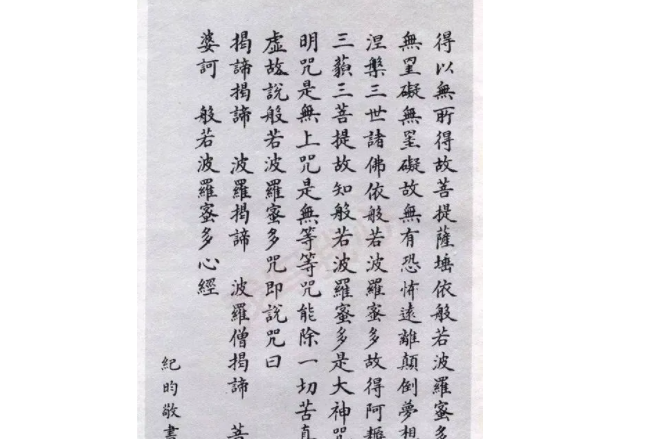 得以無所得故菩提薩埵依般若波羅蜜多
無罣礙無罣礙故無有恐怖遠離顛倒夢想
涅槃三世諸佛依般若波羅蜜多故得阿耨
三藐三菩提故知般若波羅蜜多是大神咒
明咒是無上咒是無等等咒能除一切苦真
虛故說般若波羅蜜多咒即說咒曰
揭諦揭諦 波羅揭諦 波羅僧揭諦 菩
婆訶 般若波羅蜜多心經
紀昀敬書